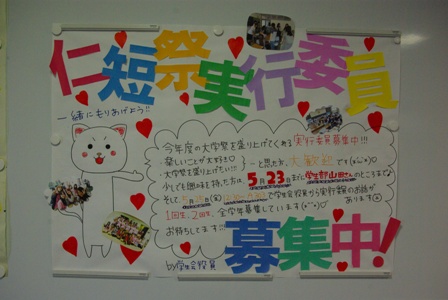 仁短祭実行委員
一緒にもりあげよう!!
今年度の大学祭を盛り上げてくれる実行委員募集中!!!
・楽しいことが大好き
・大学祭を盛り上げたい!!
と思った方、大歓迎です
少しでも興味を持た方は5月23日までに学生部山田さんのところまで
そして5月
学生会役員から実行委員のお話があります
1回生、2回生、全学年募集しています
お待ちしてます
募集中!
by学生会役員